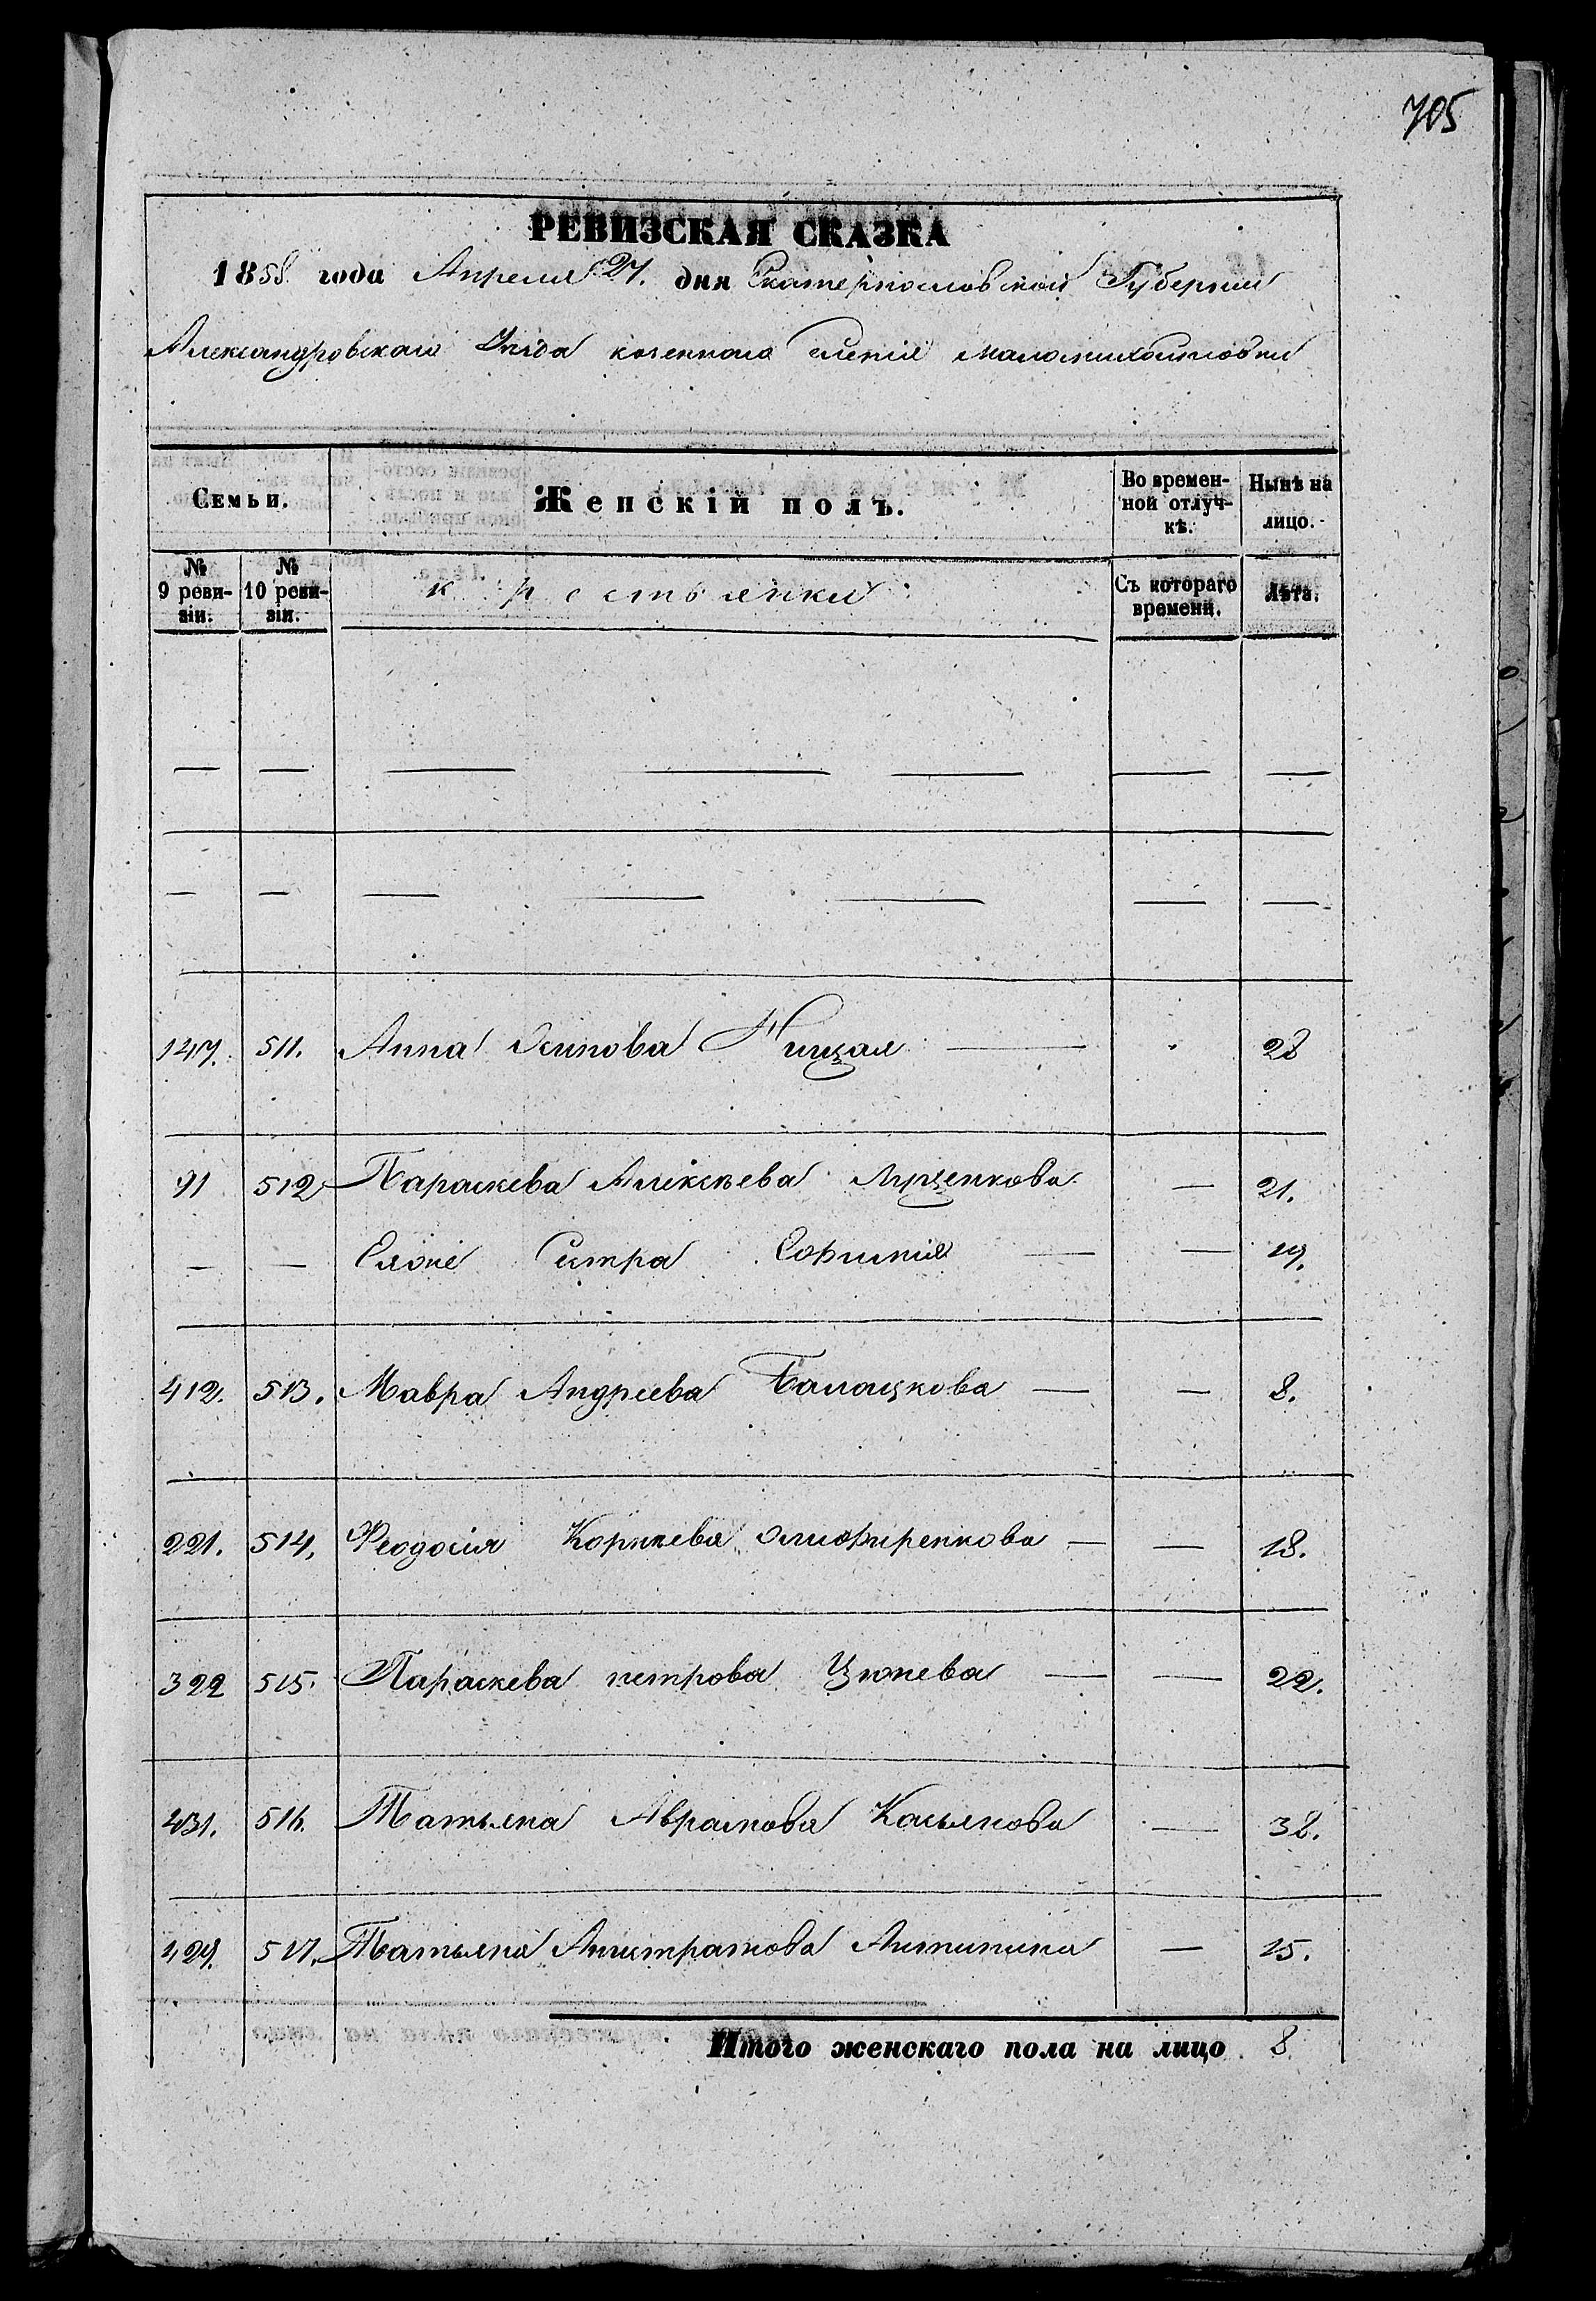 705
РЕВИЗСКАЯ СКАЗКА
1858 года Апреля 27. дня Екатеринославской Губернии
Александровскаго Уѣзда казеннаго имѣнія маломихайловки
Семьи. Женскій полъ. Во времен-ной отлуч-кѣ. Нынѣ на лицо.
№ 9 реви-зіи. № 10 реви-зіи. крестьянки Съ котораго времени. Лѣта.
— — — — — — —
— — — — — — —
147. 511. Анна Осипова — 28
91 512 Параскева Алексѣева Луценкова — 21.
— — Ея же Сестра Евфимія — — 19.
412. 513. Мавра Андреева Балацкова — — 8.
221. 514. Феодосія Корнѣева Олифиренкова — — 18.
322 515. Параскева петрова Цюпева — — 22.
431. 516. Татьяна Аврамова Касьянова — 38.
517. Татьяна Антипина — 15.
Итого женскаго пола на лицо 8